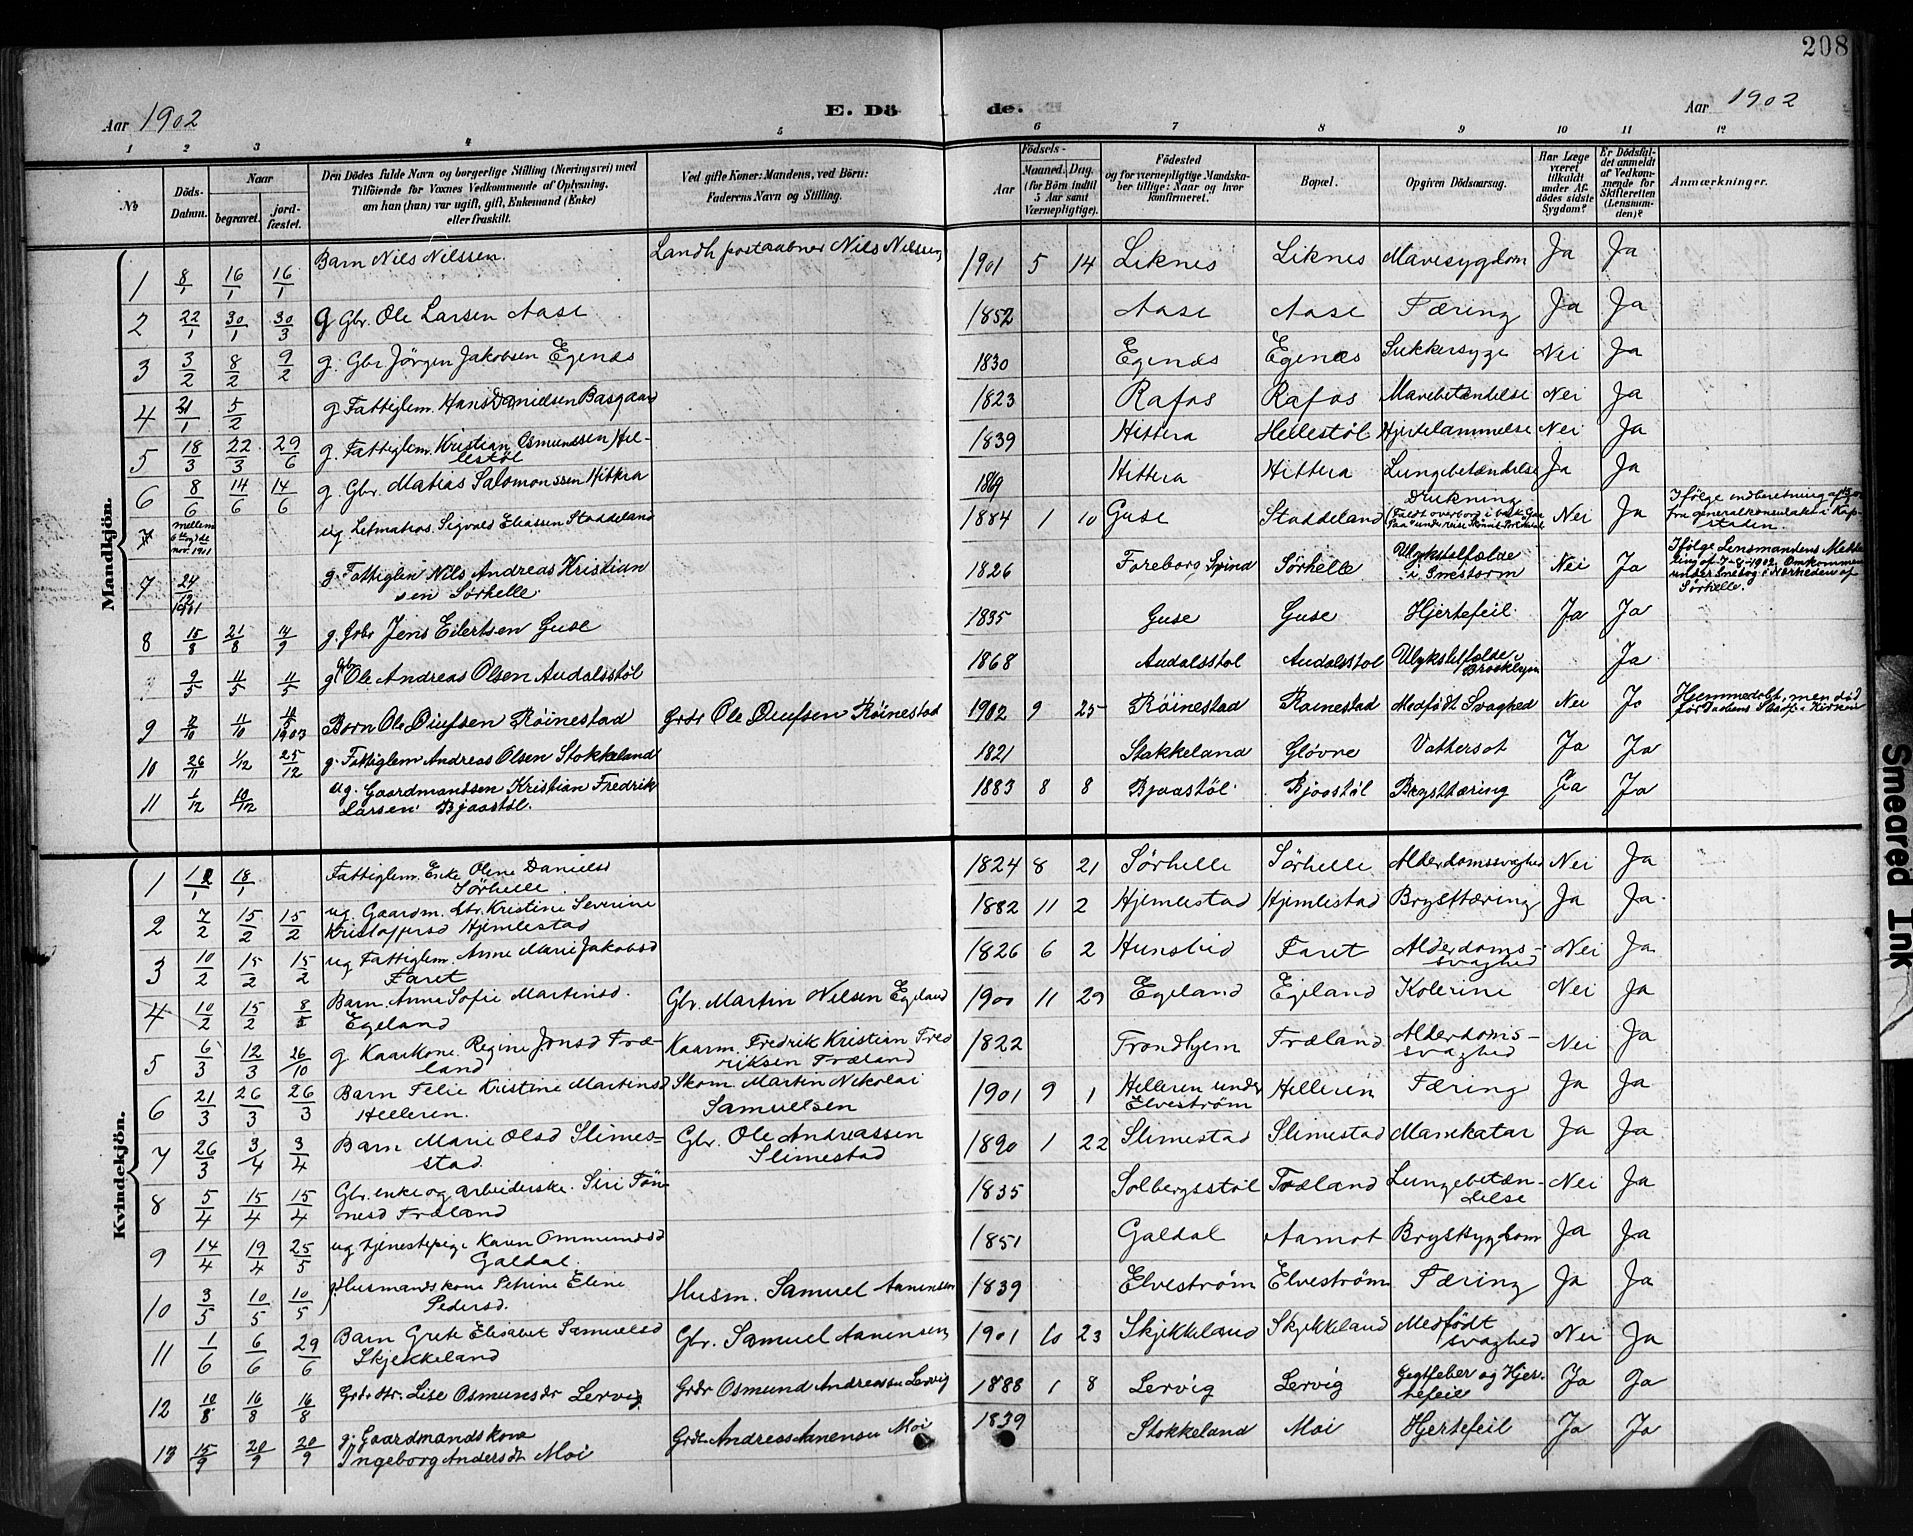 208
Aar 1902
E. Dö de.
Aar 1902
1 2 3 4 5 6 7 8 9 10 11 12
No.
Döds-Datum.
Naar begravet. jordfæstet.
Den Dödes fulde Navn og borgerlige Stilling (Næringsvei) med
Tilföiende for Voxnes Vedkommende af Oplysning,
om han (hun) var ugift, gift, Enkemand (Enke)
eller fraskilt.
Ved gifte Koner: Mandens, ved Börn:
Faderens Navn og Stilling.
Födsels-
Aar Maaned. Dag.
(for Börn indtil
5 Aar samt
Værnepligtige).
Födested
og for værnepligtige Mandska-
ber tillige: Naar og hvor
konfirmeret.
Bopæl.
Opgiven Dödsaarsag.
Har Læge
været
tilkaldt
under Af-
dödes sidste
Sygdom?
Er Dödsfal-
det anmeldt
af Vedkom-
mende for
Skifteretten
(Lensman-
den)?
Anmærkninger.
Mandkjön.
1 8/1 16/1 16/1 Barn Nils Nilssen. Landh. postaabner Nils Nilssen 1901 5 14 Liknes Liknes Mavesygdom Ja Ja
2 22/1 30/1 30/3 g Gbr. Ole Larsen Aase 1852 Aase Aase Tæring Ja Ja
3 3/2 8/2 9/2 g. Gbr Jörgen Jakobsen Egenæs 1830 Egenæs Egenæs Sukkersyge Nei Ja
4 31/1 5/2 g. Fattiglem. Hans Danielsen Basgaard 1823 Rafos Rafos Mavebetændelse Nei Ja
5 18/3 22/3 29/6 g. Fattiglem. Kristian Osmundssen Hel-
lestöl 1839 Hitterø Hellestöl Hjertelammelse Nei Ja
6 8/6 14/6 14/6 g. Gbr. Matias Salomonssen Hitterø 1869 Hitterø Hitterø Lungebetændelse Ja Ja
7 mellem 6te og 7de nov. 1901 ug Letmatros. Sigvald Eliassen Staddeland 1884 1 10 Guse Staddeland Drukning
(Faldt overbord i bark Nei Ja Ifølge indberetning
fra generalkonsulatet i Kap-
staden.
7 24/12 1901 g. Fattiglem Nils Andreas Kristian
sen Sørhelle 1826 Foreborg, Spind Sørhelle Ulykkestilfælde
i Snestorm Nei Ja Ifølge Lensmandens Meddelelse
1902. Omkommen
under Snefog i Nærheden af
Sørhelle.
8 15/8 21/8 14/9 g. Grbr Jens Eilertsen Guse 1835 Guse Guse Hjertefeil. Ja Ja
9/5 11/5 11/5 g Gbr Ole Andreas Olsen Audalsstøl 1868 Audalsstøl Audalsstøl Ulykkestilfælde i
Brooklyn Ja
9 8/10 11/10 18/5 1903 Barn Ole Olufsen Röinestad Grdr Ole Olufsen Röinestad 1902 9 25 Röinestad Röinestad Medfødt Svaghed Nei Ja Hjemmedøbt, men død
før Daabens Stadf. i Kirken
10 26/11 1/12 25/12 g. Fattiglem Andreas Olsen Stokkeland 1821 Stokkeland Gløvne Vattersot Ja Ja
11 1/12 10/12 ug. Gaardmandssøn Kristian Fredrik
Larsen Bjaastøl. 1883 8 8 Bjaastøl Bjaastøl Brysttæring Ja Ja
Kvindekjön.
1 12/1 18/1 Fattiglem. Enke Oline Danielsd
Sörhelle 1824 8 21 Sörhelle Sörhelle Alderdomssvaghed Nei Ja
2 7/2 15/2 15/2 ug. Gaardm. dtr. Kristine Severine
Kristoffersd Hjemlestad 1882 11 2 Hjemlestad Hjemlestad Brysttæring Ja Ja
3 10/2 15/2 15/2 ug Fattiglem. Anne Marie Jakobsd
Faret 1826 6 2 Hunsbid Faret Alderdoms-
svaghed Nei Ja
4 10/2 15/2 8/5 Barn. Anne Sofie Martinsd.
Egeland Gbr. Martin Nilsen Egeland 1900 11 29 Egeland Egeland Kolerine Nei Ja
5 6/3 12/3 26/10 g Kaarkone. Regine Jonsd Træ-
land Kaarm. Fredrik Kristian Fred
riksen Træland 1822 Trondhjem Træland Alderdoms-
svaghed Nei Ja
6 21/3 26/3 26/3 Barn Felie Kristine Martinsd
Helleren. Skom. Martin Nikolai
Samuelsen 1901 9 1 Helleren under
Elveström Helleren Tæring Ja Ja
7 26/3 3/4 3/4 Barn Marie Olsd Slimes-
stad. Gbr. Ole Andreassen
Slimestad 1890 1 22 Slimestad Slimestad Mavekatar Ja Ja
8 5/4 15/4 15/4 Gbr. enke og arbeiderske. Siri Tön-
nesd Træland 1835 Solbergsstöl Træland Lungebetæn-
delse Nei Ja
9 14/4 19/4 25/5 ug tjenestepige Karen Ommundsd
Galdal. 1851 Galdal Aamot Brystsygdom Ja Ja
10 3/5 10/5 10/5 Husmandskone Petrine Eline
Pedersd. Husm. Samuel Aanensen 1839 Elveström Elveström Tæring Ja Ja
11 1/6 6/6 29/6 Barn Grete Elisabet Samuelsd
Skjekkeland Gbr. Samuel Aanensen 1901 10 23 Skjekkeland Skjekkeland Medfödt
svaghed Nei Ja
12 10/8 16/8 16/8 Grdr. dtr. Lise Osmundsdr Lervig. Grdr Osmund Andreassen Lervig 1888 1 8 Lervig Lervig Gigtfeber og Hjer-
tefeil Ja Ja
13 15/9 20/9 20/9 g. Gaardmandskone
Ingeborg Andersdt Moi Grdr Andreas Aanensen Moi 1839 Stokkeland Moi Hjertefeil Ja Ja
Smeared Ink